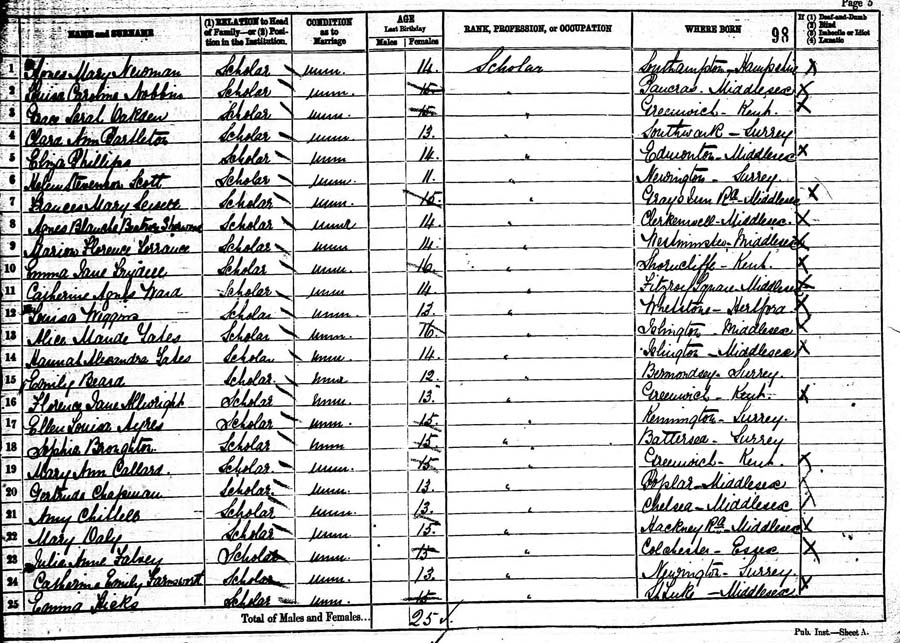 Page 5
NAME and SURNAME (1) RELATION to Head of Family—or (2) Position in the Institution. CONDITION as to Marriage AGE Last Birthday Males Females RANK, PROFESSION, or OCCUPATION WHERE BORN 98 If (1) Deaf-and-Dumb (2) Blind (3) Imbecile or Idiot (4) Lunatic
1 Agnes Mary Newman Scholar unm. 14 Scholar Southampton - Hampshire X
2 Louisa Caroline Nobbins Scholar unm. 15 " Pancras - Middlesex X
3 Grace Sarah Oakden Scholar unm. 15 " Greenwich - Kent X
4 Clara Ann Partleton Scholar unm. 13 " Southwark - Surrey
5 Eliza Phillips Scholar unm 14 " Edmonton - Middlesex X
6 Helen Stevenson Scott Scholar unm. 11 " Newington - Surrey
7 Frances Mary Scholar unm. 15 " Grays Inn Rd - Middlesex X
8 Agnes Blanche Beatrice Scholar unm 14 " Clerkenwell - Middlesex X
9 Marion Florence Torrance Scholar unm. 14 " Westminster - Middlesex X
10 Emma Jane Scholar unm. 16 " Shorncliffe - Kent X
11 Catherine Agnes Ward Scholar unm 14 " Fitzroy Square - Middlesex X
12 Louisa Wiggins Scholar unm. 13 " Whetstone - Hertford X
13 Alice Maude Yates Scholar unm. 16 " Islington Middlesex X
14 Hannah Alexandra Yates Scholar unm. 14 " Islington - Middlesex X
15 Emily Beard Scholar unm 12 " Bermondsey - Surrey
16 Florence Jane Allwright Scholar unm. 13 " Greenwich - Kent X
17 Ellen Louisa Ayres Scholar unm. 15 " Kennington - Surrey
18 Sophia Broughton Scholar unm 15 " Battersea - Surrey
19 Mary Ann Callard. Scholar unm. 15 " Greenwich - Kent X
20 Gertrude Chapman Scholar unm. 13 " Poplar - Middlesex
21 Amy Scholar unm. 13 " Chelsea - Middlesex
22 Mary Daly Scholar unm. 15 " Hackney Rd - Middlesex X
23 Julia Anne Falvey Scholar unm. 15 " Colchester - Essex X
24 Catherine Emily Farnsworth Scholar unm. 13 " Newington - Surrey
25 Emma Hicks Scholar unm. 15 " St Luke - Middlesex X
Total of Males and Females... 25
Pub. Inst.—Sheet A.